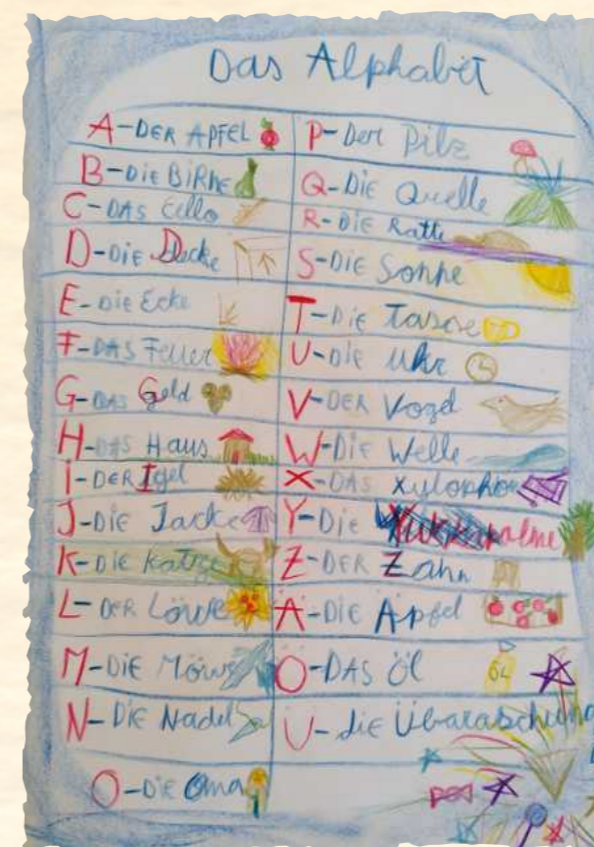 Das Alphabet
A-DER APFEL
B-DiE BiRNE
C-DAS Cello
D-DiE Decke
E-Die Ecke
F-DAS Feuer
G-DAS Geld
H-DAS Haus
I-DER Igel
J-DiE Jacke
K-DiE Katze
L-DER Löwe
M-DiE Möwe
N-DiE Nadel
O-DiE Oma
P-Der Pilz
Q-Die Quelle
R-DiE Ratte
S-DiE Sonne
T-DiE Tasse
U-DiE Uhr
V-DER Vogel
W-DiE Welle
X-DAS Xylophon
Y-DiE Yukkapalme
Z-DER Zahn
Ä-DiE Äpfel
Ö-DAS Öl
ÖL
Ü-die Übaraschung